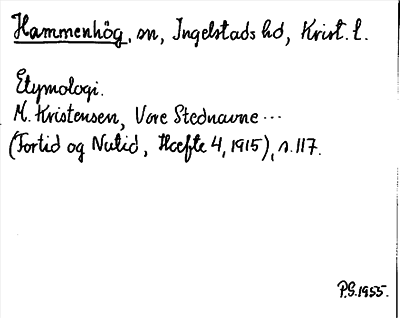 Hammenhög, sn, Ingelstads hd, Krist. l.
Etymologi.
M. Kristensen, Vore Stednavne ...
(Fortid og Nutid, Hæfte 4, 1915), s. 117.
P.G. 1955.